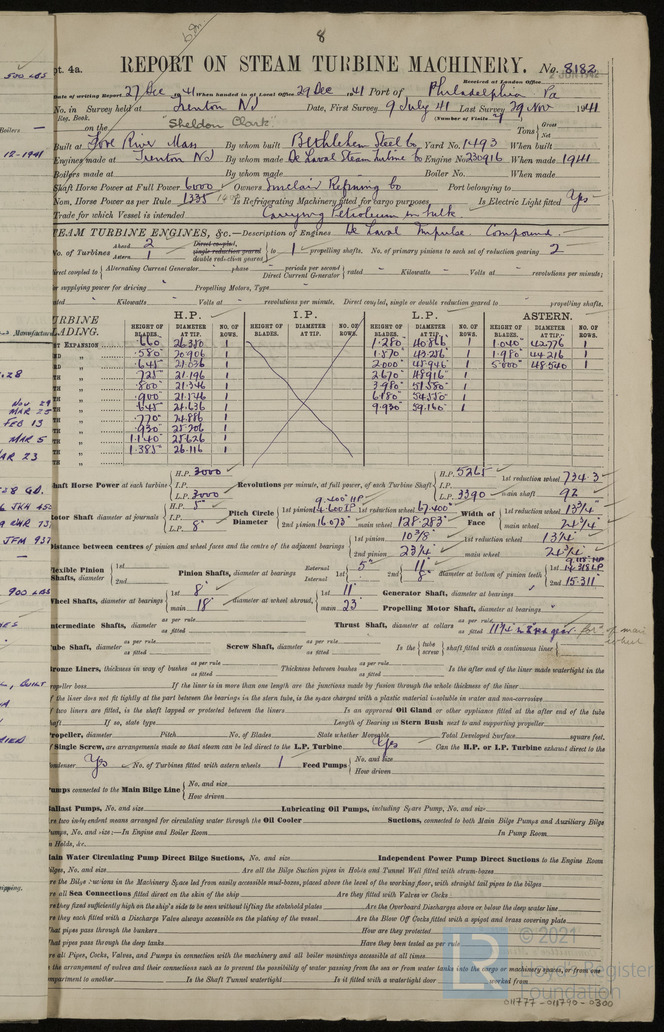 8
pt. 4a.
REPORT ON STEAM TURBINE MACHINERY. No. 8182
Received at London Office 2 JUN 1942
Date of writing Report 27 Dec 1941 When handed in at Local Office 29 Dec 1941 Port of Philadelphia Pa
No. in Survey held at Trenton NJ Date, First Survey 9 July 41 Last Survey 29 Nov 1941
Reg. Book. (Number of Visits 9)
on the "Sheldon Clark" Tons Gross Net
Built at Fore River Mass By whom built Bethlehem Steel Co Yard No. 1493 When built
Engines made at Trenton NJ By whom made De Laval Steam Turbine Co Engine No. 230916 When made 1941
Boilers made at By whom made Boiler No. When made
Shaft Horse Power at Full Power 6000 Owners Sinclair Refining Co Port belonging to
Nom. Horse Power as per Rule 1335 Is Refrigerating Machinery fitted for cargo purposes Is Electric Light fitted Yes
Trade for which Vessel is intended Carrying Petroleum in bulk
STEAM TURBINE ENGINES, &c.—Description of Engines De Laval Impulse Compound
No. of Turbines Ahead 2 Astern 1 Direct coupled, single reduction geared double reduction geared to 1 propelling shafts. No. of primary pinions to each set of reduction gearing 2
direct coupled to Alternating Current Generator phase periods per second Direct Current Generator rated Kilowatts Volts at revolutions per minute;
for supplying power for driving Propelling Motors, Type
rated Kilowatts Volts at revolutions per minute. Direct coupled, single or double reduction geared to propelling shafts.
TURBINE BLADING. H.P. I.P. L.P. ASTERN.
HEIGHT OF BLADES. DIAMETER AT TIP. NO. OF ROWS HEIGHT OF BLADES. DIAMETER AT TIP. NO. OF ROWS. HEIGHT OF BLADES. DIAMETER AT TIP. NO. OF ROWS. HEIGHT OF BLADES. DIAMETER AT TIP. NO. OF ROWS.
1ST EXPANSION .660 26.380 1 1.280 40.866 1 1.040" 42.776 1
.580" 20.906 1 1.570 43.256" 1 1.980 44.216 1
.645" 21.036 1 2.000 45.946 1 5.000" 48.540 1
.725" 21.196 1 2.670 48.916 1
.800" 21.346 1 3.980 51.580 1
.900" 21.546 1 6.180 54.550 1
.645" 24.636 1 9.930 59.160 1
.770" 24.886 1
.930" 25.206 1
1.140" 25.626 1
1.385" 26.116 1
Shaft Horse Power at each turbine H.P. 3000 I.P. L.P. 3000 Revolutions per minute, at full power, of each Turbine Shaft H.P. 5265 I.P. L.P. 3390 1st reduction wheel 734.3 main shaft 92
Rotor Shaft diameter at journals H.P. 5" I.P. L.P. 8" Pitch Circle Diameter 1st pinion 9.400 HP 14.600 LP 1st reduction wheel 67.400" 2nd pinion 16.073" main wheel 128.283" Width of Face 1st reduction wheel 13 3/4" main wheel 24 3/4"
Distance between centres of pinion and wheel faces and the centre of the adjacent bearings 1st pinion 10 3/8" 2nd pinion 23 1/4" 1st reduction wheel 13 1/4" main wheel 24 3/4"
Flexible Pinion Shafts, diameter 1st 2nd Pinion Shafts, diameter at bearings External Internal 1st 5" 2nd 11" 8" diameter at bottom of pinion teeth 1st 2nd 15.311"
Wheel Shafts, diameter at bearings 1st 8" main 18" diameter at wheel shroud, 1st 11" main 23" Generator Shaft, diameter at bearings Propelling Motor Shaft, diameter at bearings
Intermediate Shafts, diameter as per rule as fitted Thrust Shaft, diameter at collars as per rule as fitted
Tube Shaft, diameter as per rule as fitted Screw Shaft, diameter as per rule as fitted Is the tube screw shaft fitted with a continuous liner
Bronze Liners, thickness in way of bushes as per rule as fitted Thickness between bushes as per rule as fitted Is the after end of the liner made watertight in the
propeller boss If the liner is in more than one length are the junctions made by fusion through the whole thickness of the liner
If the liner does not fit tightly at the part between the bearings in the stern tube, is the space charged with a plastic material insoluble in water and non-corrosive
If two liners are fitted, is the shaft lapped or protected between the liners Is an approved Oil Gland or other appliance fitted at the after end of the tube
shaft If so, state type Length of Bearing in Stern Bush next to and supporting propeller
Propeller, diameter Pitch No. of Blades State whether Moveable Total Developed Surface square feet.
If Single Screw, are arrangements made so that steam can be led direct to the L.P. Turbine Yes Can the H.P. or I.P. Turbine exhaust direct to the
Condenser Yes No. of Turbines fitted with astern wheels 1 Feed Pumps No. and size How driven
Pumps connected to the Main Bilge Line No. and size How driven
Ballast Pumps, No. and size Lubricating Oil Pumps, including Spare Pump, No. and size
Are two independent means arranged for circulating water through the Oil Cooler Suctions, connected to both Main Bilge Pumps and Auxiliary Bilge
Pumps, No. and size:—In Engine and Boiler Room In Pump Room
In Holds, &c.
Main Water Circulating Pump Direct Bilge Suctions, No. and size Independent Power Pump Direct Suctions to the Engine Room
Bilges, No. and size Are all the Bilge Suction pipes in Holds and Tunnel Well fitted with strum-boxes
Are the Bilge Suctions in the Machinery Space led from easily accessible mud-boxes, placed above the level of the working floor, with straight tail pipes to the bilges
Are all Sea Connections fitted direct on the skin of the ship Are they fitted with Valves or Cocks
Are they fixed sufficiently high on the ship's side to be seen without lifting the stokehold plates Are the Overboard Discharges above or below the deep water line
Are they each fitted with a Discharge Valve always accessible on the plating of the vessel Are the Blow Off Cocks fitted with a spigot and brass covering plate
What pipes pass through the bunkers How are they protected
What pipes pass through the deep tanks Have they been tested as per rule
Are all Pipes, Cocks, Valves, and Pumps in connection with the machinery and all boiler mountings accessible at all times
Is the arrangement of valves and their connections such as to prevent the possibility of water passing from the sea or from water tanks into the cargo or machinery spaces, or from one
compartment to another Is the Shaft Tunnel watertight Is it fitted with a watertight door worked from
© 2021
Lloyd's Register
Foundation
011777-011790-0300